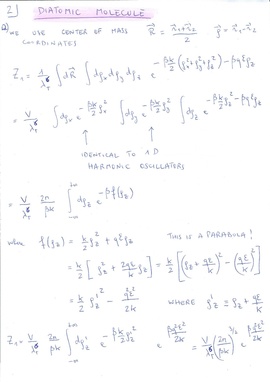 2] DIATOMIC MOLECULE
a) WE USE CENTER OF MASS R⃗ = (r⃗₁+r⃗₂)/2 ρ⃗ = r⃗₁-r⃗₂
COORDINATES
Z₁ = 1/λ_T⁶ ∫dR⃗ ∫dρ_x dρ_y dρ_z e^{-βk/2(ρ_x²+ρ_y²+ρ_z²) - βqερ_z}
= V/λ_T⁶ ∫dρ_x e^{-βk/2 ρ_x²} ∫dρ_y e^{-βk/2 ρ_y²} ∫dρ_z e^{-βk/2 ρ_z² - βqερ_z}
IDENTICAL TO 1D
HARMONIC OSCILLATORS
= V/λ_T⁶ 2π/βk ∫_{-∞}^{+∞} dρ_z e^{-βf(ρ_z)}
where f(ρ_z) = k/2 ρ_z² + qερ_z THIS IS A PARABOLA!
= k/2 [ρ_z² + 2qε/k ρ_z] = k/2 [(ρ_z + qε/k)² - (qε/k)²]
= k/2 ρ_z'² - q²ε²/2k WHERE ρ_z' ≡ ρ_z + qε/k
Z₁ = V/λ_T⁶ 2π/βk ∫_{-∞}^{+∞} dρ_z' e^{-βk/2 ρ_z'²} e^{βq²ε²/2k} = V/λ_T⁶ (2π/βk)^{3/2} e^{βq²ε²/2k}